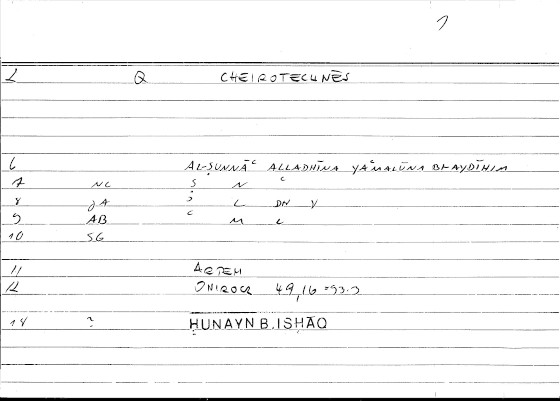 1
2 Q CHEIROTECHNĒS
6 AL-ṢUNNĀʿ ALLADHĪNA YAʿMALŪNA BI-AYDĪHIM
7 NC Ṣ N ʿ
8 JA L DN Y
9 AB ʿ M L
10 SG
11 ARTEM
12 ONIROCR 49,16 =93.3
14 ḤUNAYN B. ISḤĀQ